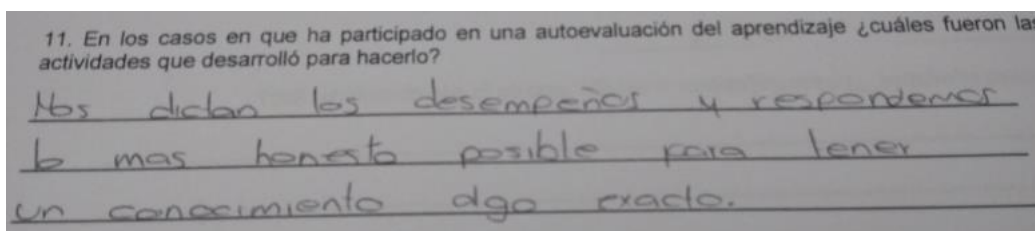 11. En los casos en que ha participado en una autoevaluación del aprendizaje ¿cuáles fueron las
actividades que desarrolló para hacerlo?
Nos dictan los desempeños y respondemos
lo mas honesto posible para tener
un conocimiento algo exacto.